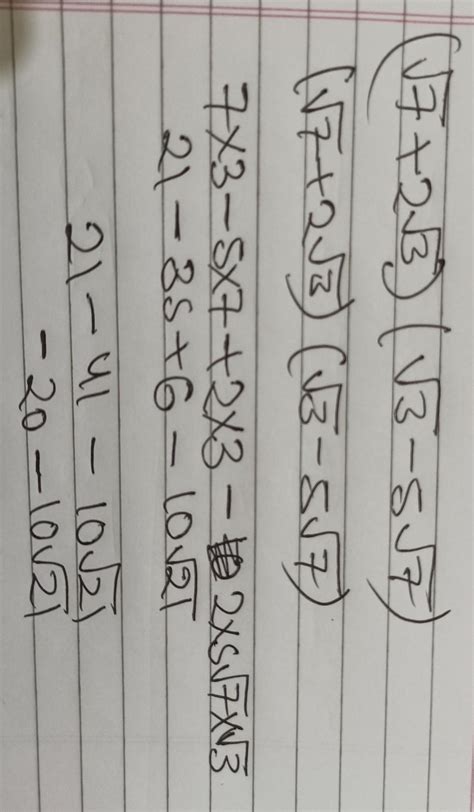 (√7+2√3) (√3-5√7)
(√7+2√3) (√3-5√7)
7×3-5×7+2×3-2×5√7×√3
21-35+6-10√21
21-41-10√21
-20-10√21